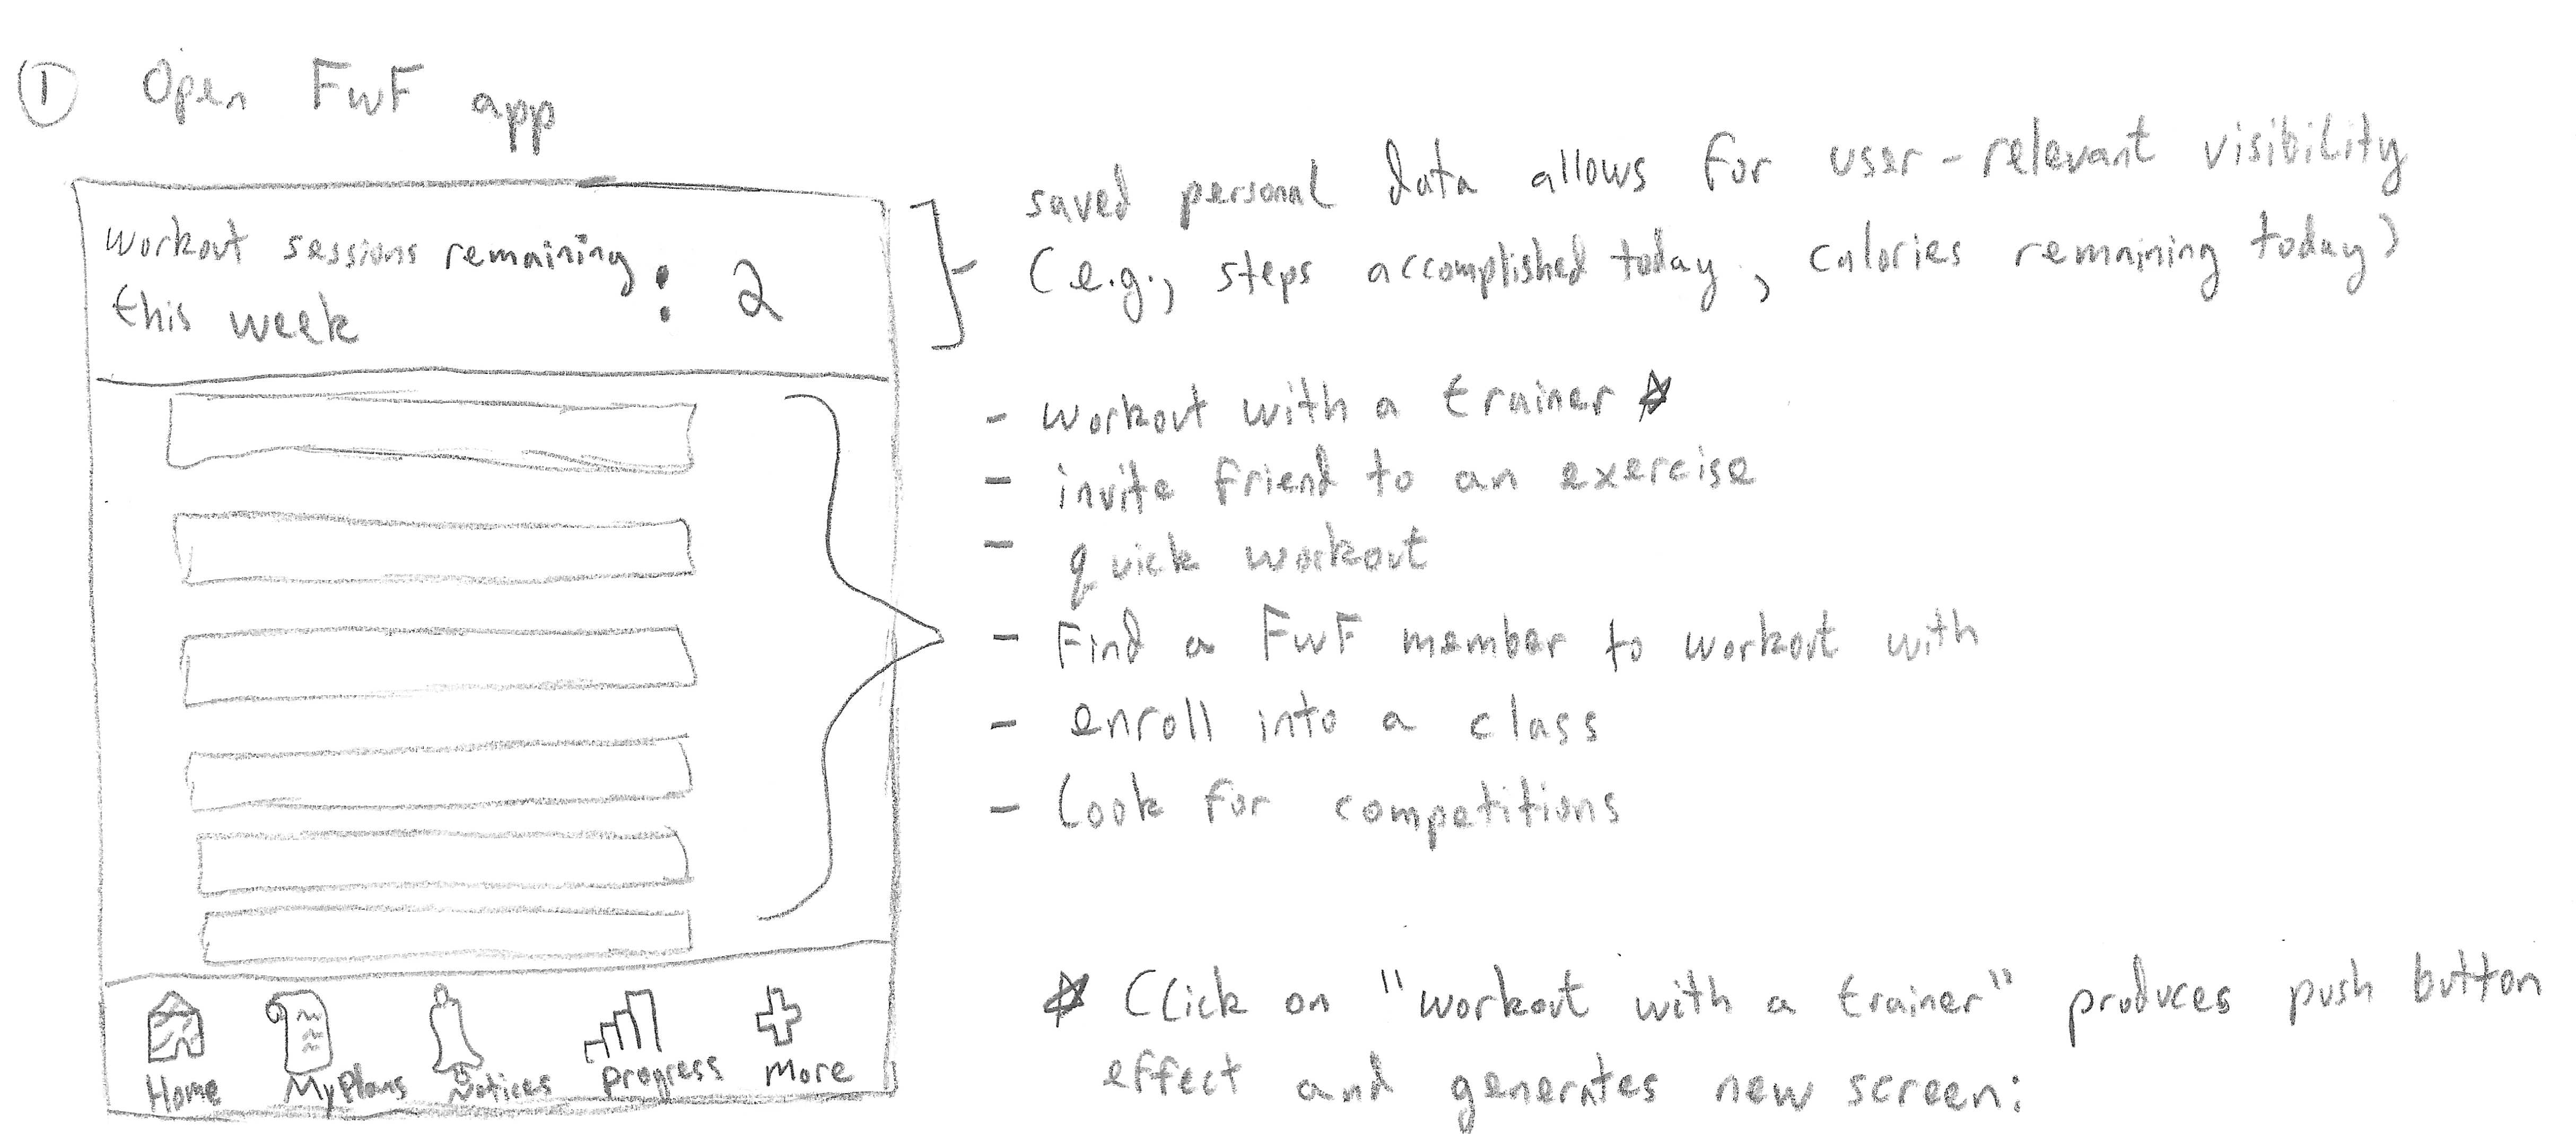 ① Open FwF app
workout sessions remaining
this week : 2
saved personal data allows for user-relevant visibility
(e.g., steps accomplished today, calories remaining today)
- workout with a trainer ☆
- invite friend to an exercise
- quick workout
- Find a FwF member to workout with
- enroll into a class
- Look for competitions
Home My Plans Notices Progress More
☆ Click on "workout with a trainer" produces push button
effect and generates new screen: